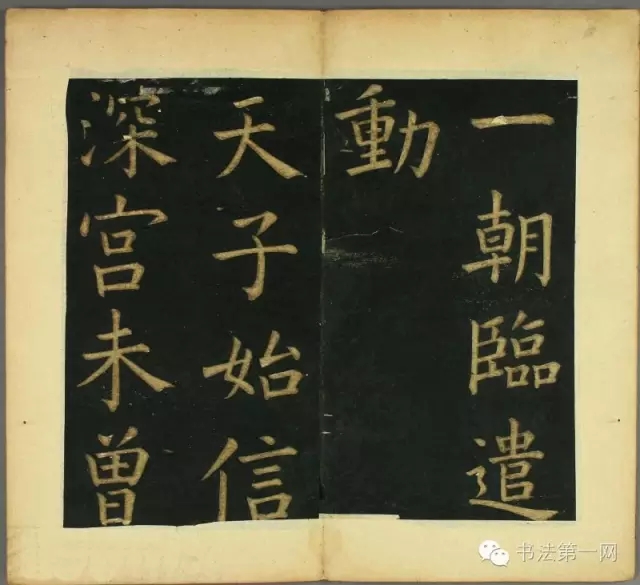 一朝臨遣
動
天子始信
深宮未曾
书法第一网